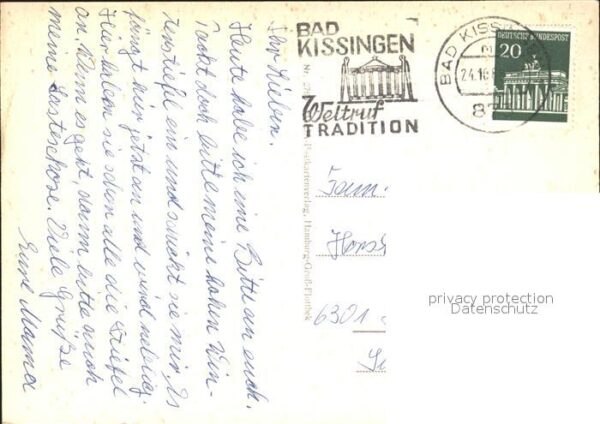 Ihr Lieben.
Heute habe ich eine Bitte an euch.
Packt doch bitte meine hohen Win-
terstiefel ein und schickt sie mir. Es
fängt hier jetzt an und wird neblig.
Hier haben sie schon alle die Stiefel
an. Wenn es geht, dann bitte auch
meine Hose. Viele Grüße
Eure Mama
BAD
KISSINGEN
Weltruf
TRADITION
BAD KISSINGEN
24.10.
8
DEUTSCHE BUNDESPOST
20
Nr.
Postkartenverlag, Hamburg-Groß-Flottbek
Fam.
Horst
6301
privacy protection
Datenschutz